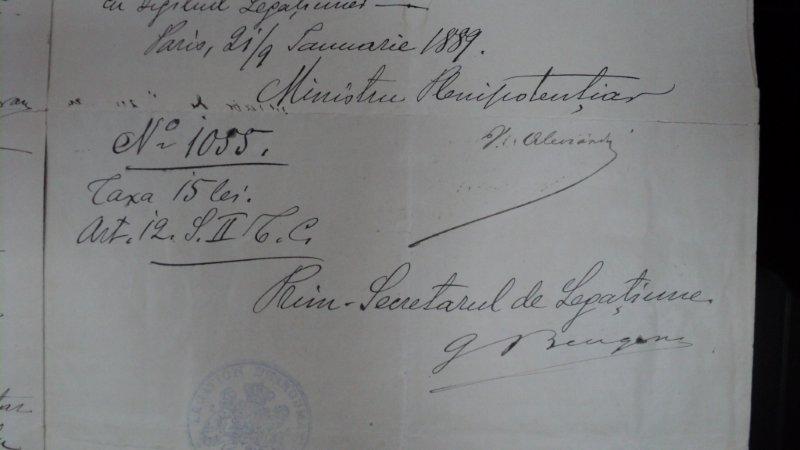 cu sigiliul Legațiunei
Paris, 21/9 Ianuarie 1889.
Ministru Plenipotențiar
No 1055.
V. Alecsandri
Taxa 15 lei.
Art. 12. S. II T. C.
Prim-Secretarul de Legațiune
G